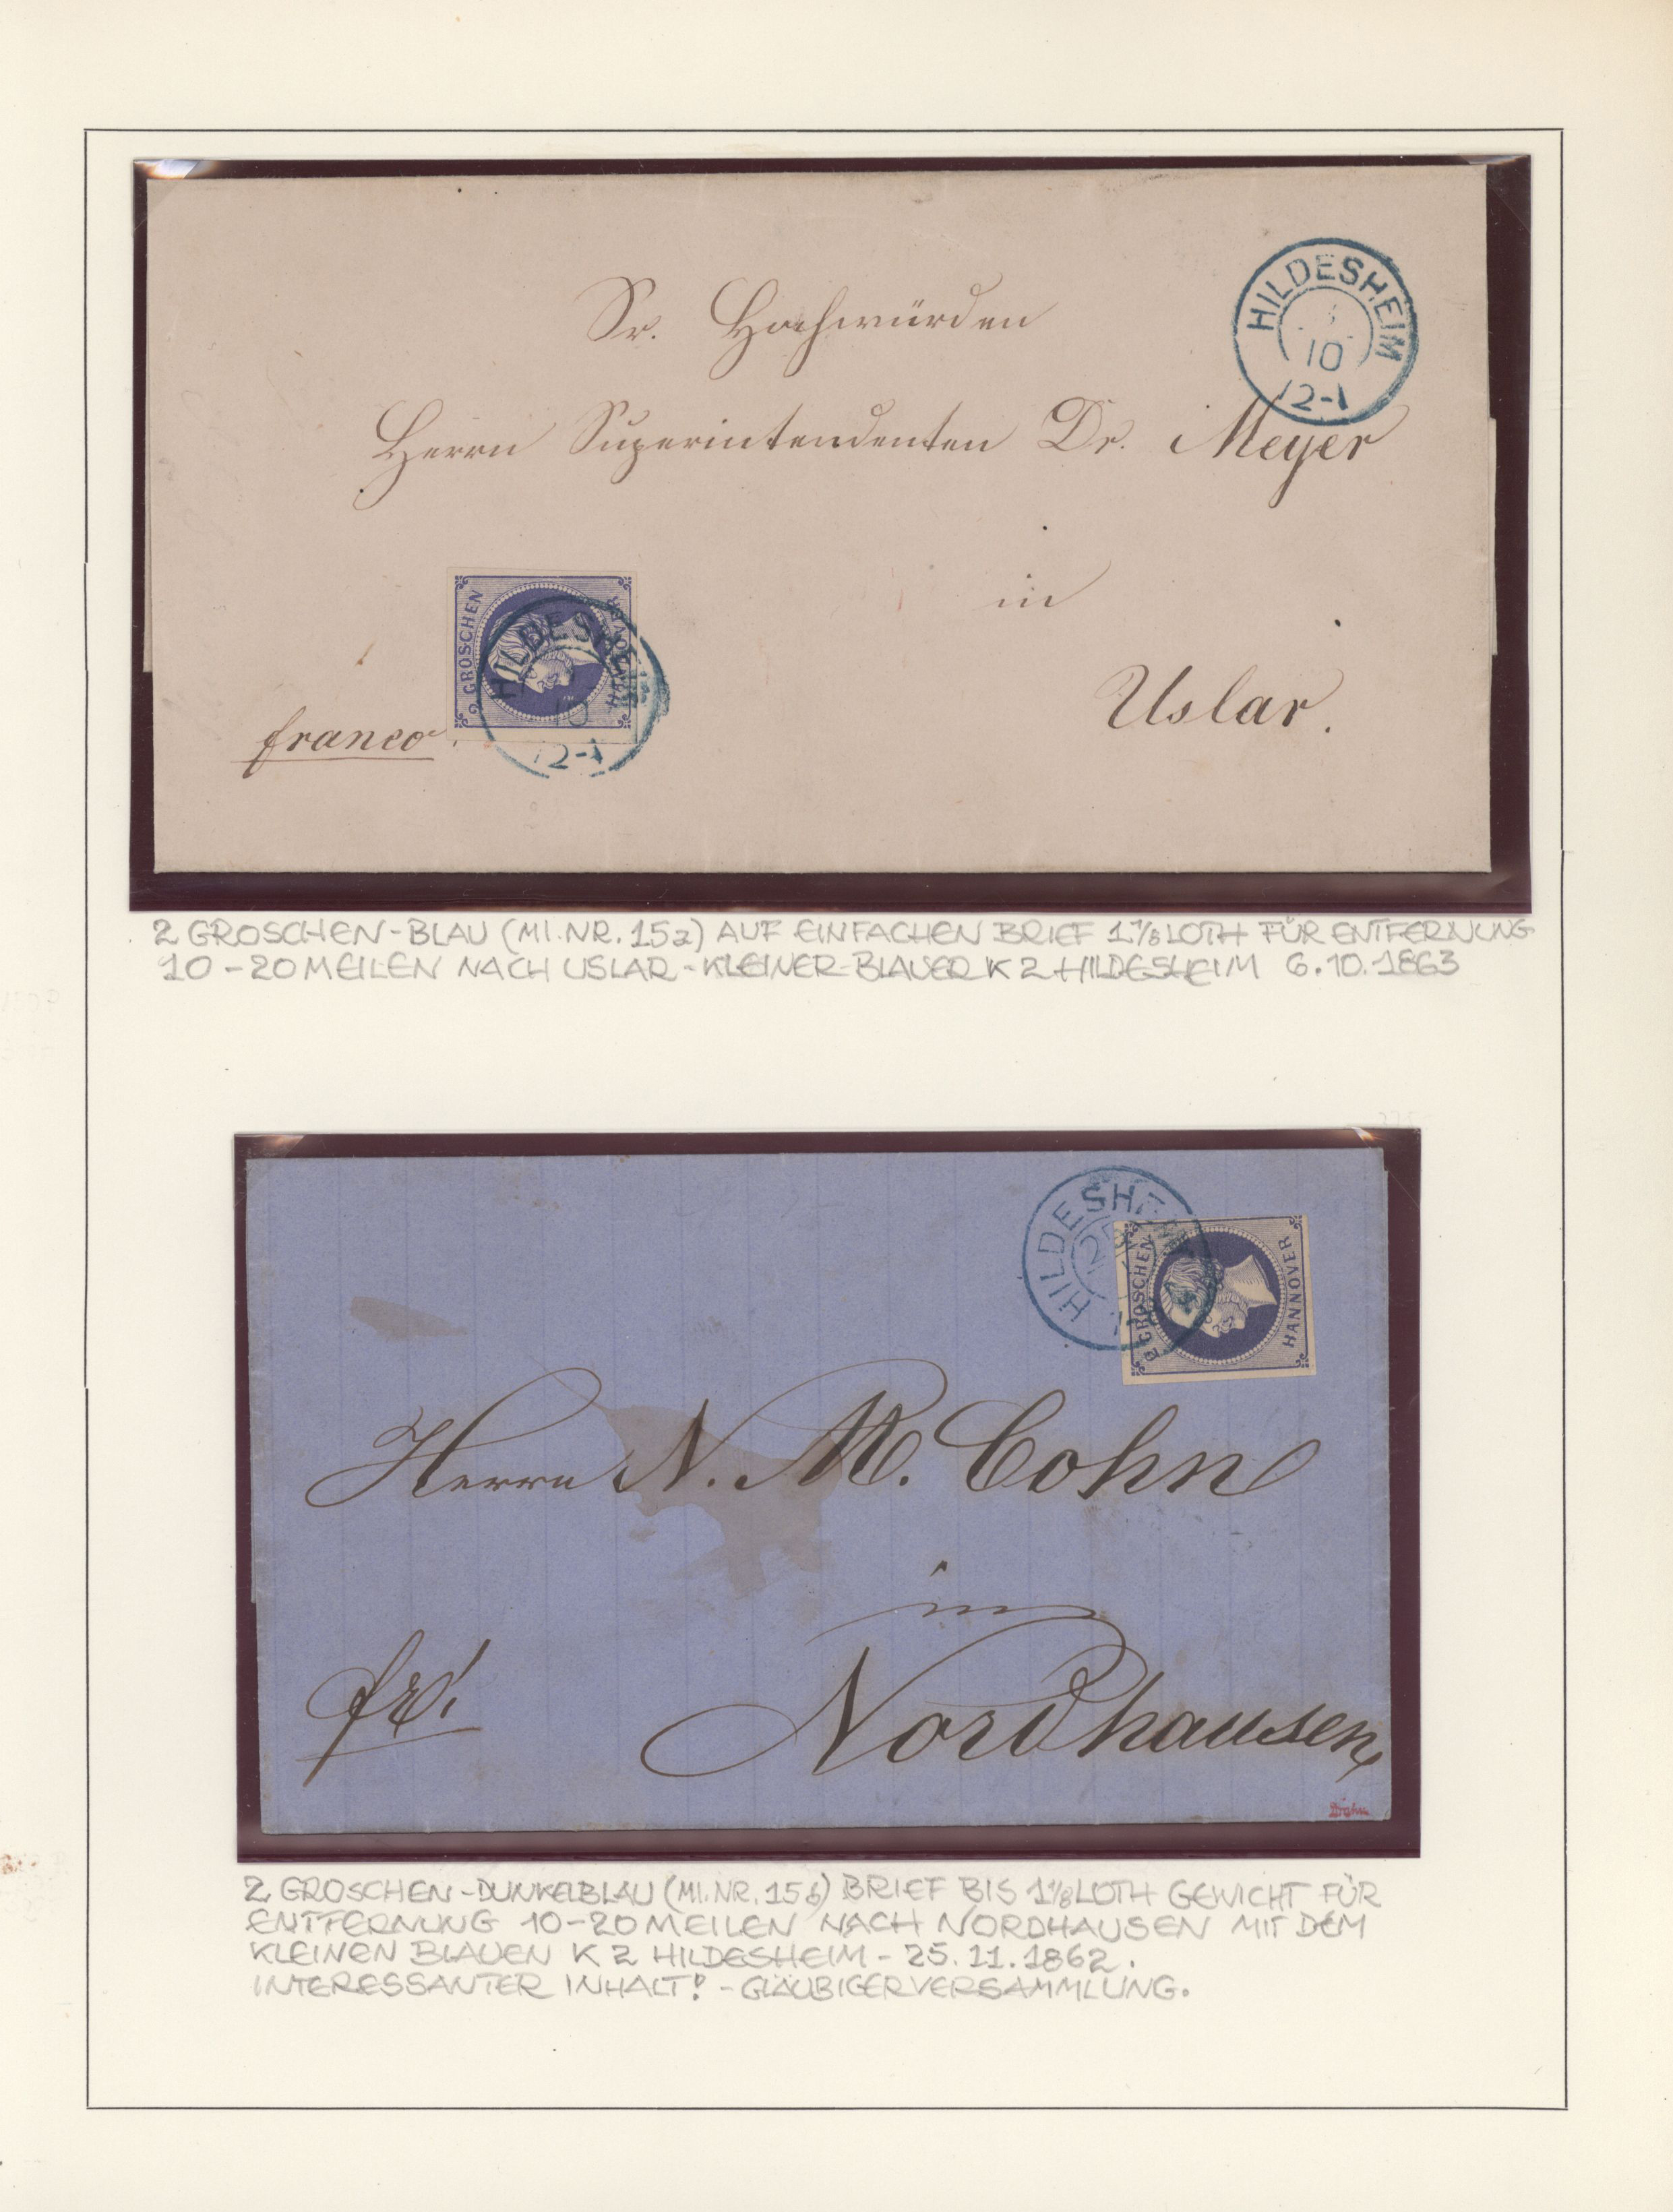 HILDESHEIM
10
12-1
Sr. Hochwürden
Herrn Superintendenten Dr. Meyer
in
Uslar.
franco.
2 GROSCHEN
HANNOVER
HILDESHEIM
10
12-1
2 GROSCHEN-BLAU (MI.NR. 15a) AUF EINFACHEN BRIEF 1 1/8 LOTH FÜR ENTFERNUNG
10-20 MEILEN NACH USLAR-KLEINER-BLAUER K2 HILDESHEIM 6.10.1863
HILDESHEIM
2 GROSCHEN
HANNOVER
Herrn N. M. Cohn
in
Nordhausen
fr!
2 GROSCHEN-DUNKELBLAU (MI.NR. 15b) BRIEF BIS 1 1/8 LOTH GEWICHT FÜR
ENTFERNUNG 10-20 MEILEN NACH NORDHAUSEN MIT DEM
KLEINEN BLAUEN K2 HILDESHEIM - 25.11.1862.
INTERESSANTER INHALT! - GLÄUBIGERVERSAMMLUNG.